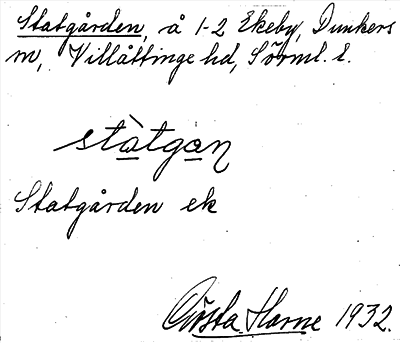 Statgården, å 1-2 Ekeby, Dunkers
sn, Villåttinge hd, Sörml. l.
stàtgan
Statgården ek
Gösta Harne 1932.